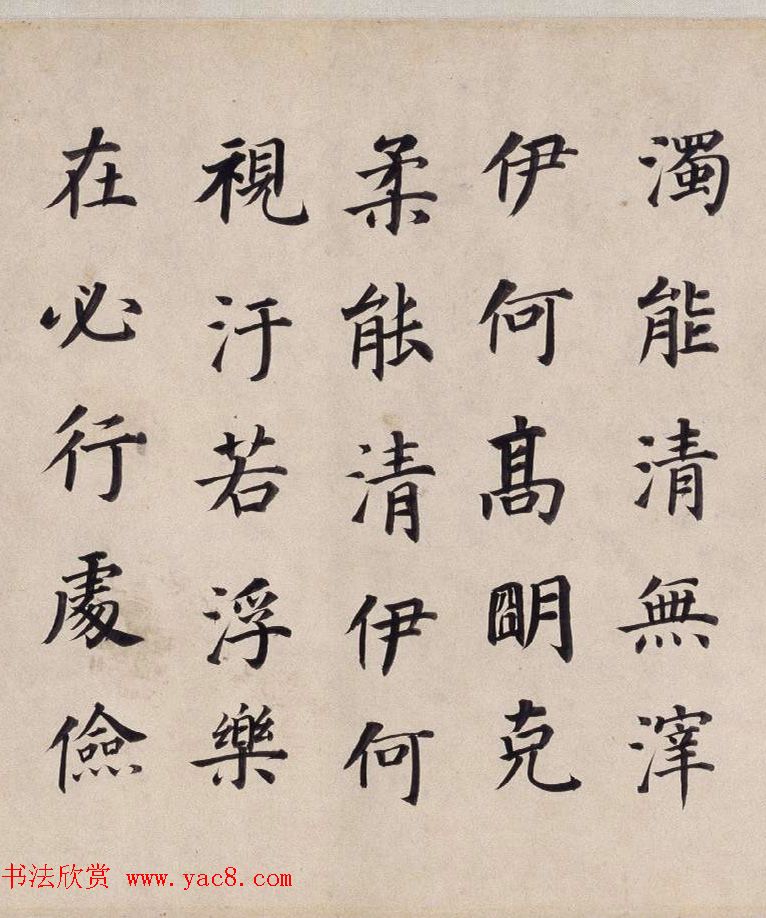 濁能清無滓
伊何高明克
柔能清伊何
視汙若浮樂
在必行處儉
书法欣赏 www.yac8.com